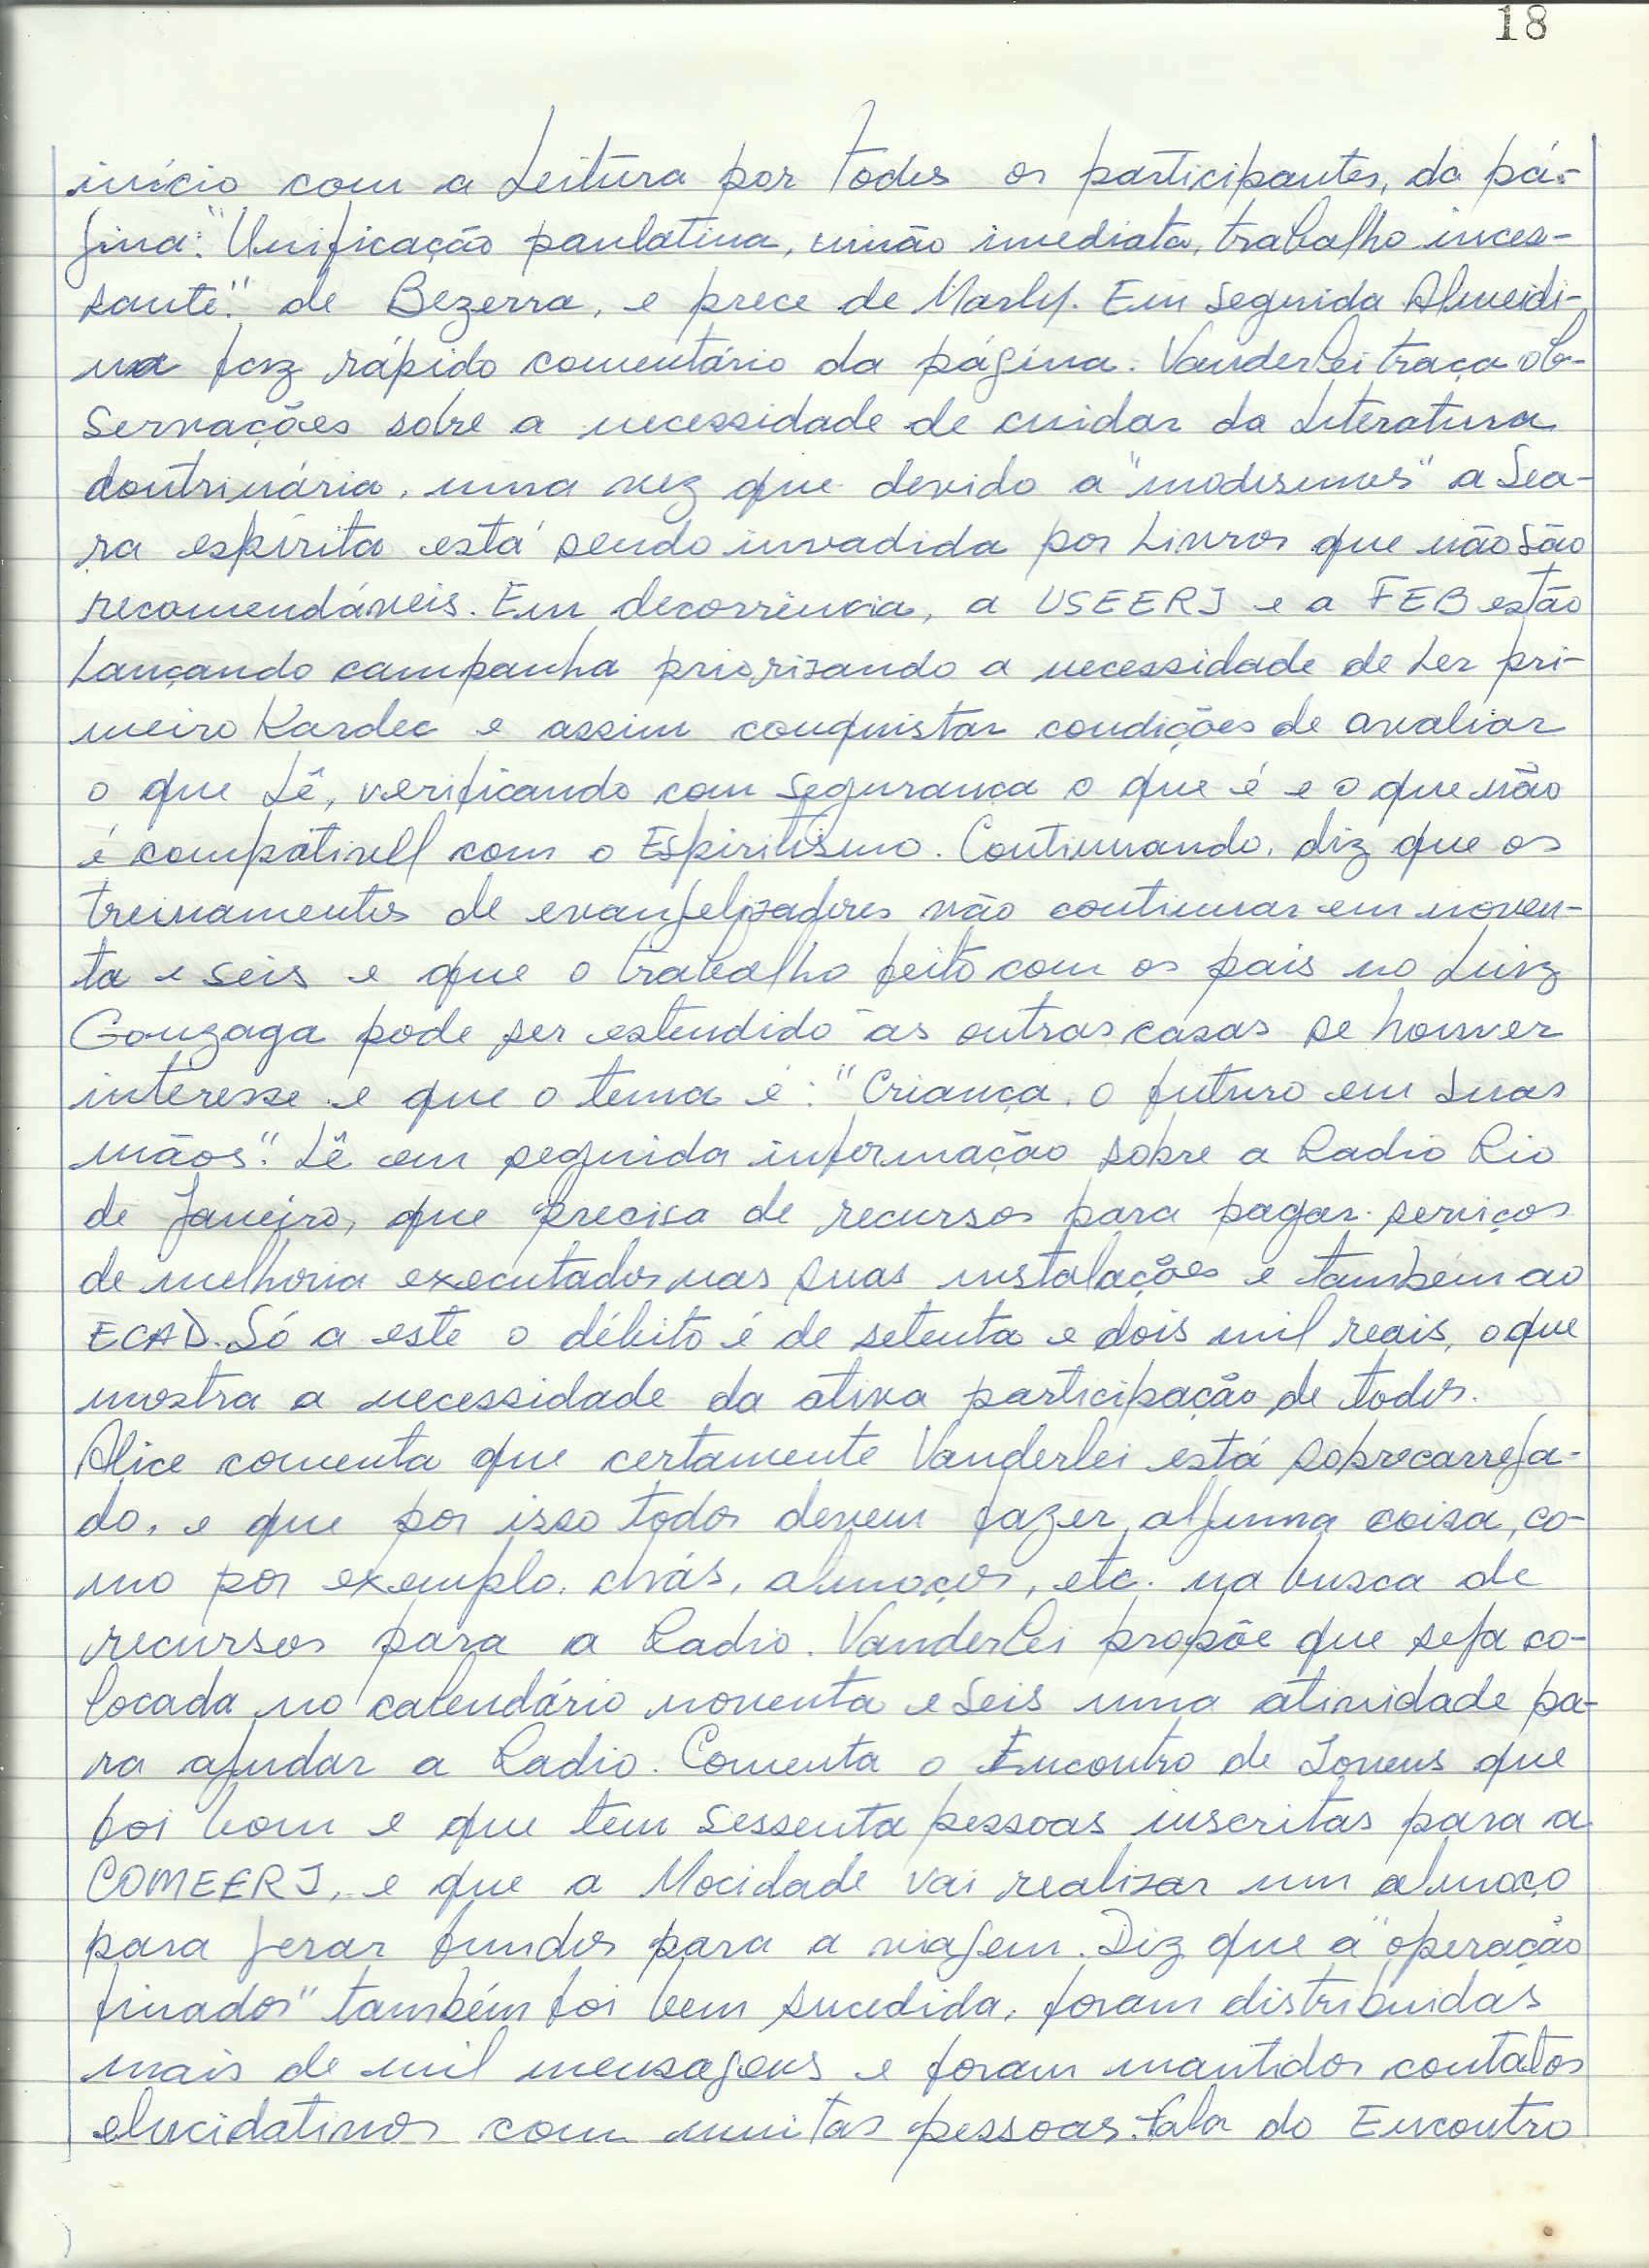 18
início com a Leitura por todos os participantes, da pá-
gina: "Unificação paulatina, união imediata, trabalho inces-
sante." de Bezerra, e prece de Marly. Em seguida Almeidi-
na faz rápido comentário da página. Vanderlei traça ob-
servações sobre a necessidade de cuidar da Literatura
doutrinária, uma vez que devido a "modismos" a Sea-
ra espírita está sendo invadida por Livros que não são
recomendáveis. Em decorrência, a USEERJ e a FEB estão
Lançando campanha priorisando a necessidade de Ler pri-
meiro Kardec e assim conquistar condições de avaliar
o que Lê, verificando com segurança o que é e o que não
é compátivell com o Espiritismo. Continuando, diz que os
treinamentos de evangelizadores vão continuar em noven-
ta e seis e que o trabalho feito com os pais no Luiz
Gonzaga pode ser estendido às outras casas se houver
interesse e que o tema é: "Criança, o futuro em suas
mãos". Lê em seguida informação sobre a Radio Rio
de Janeiro, que precisa de recursos para pagar serviços
de melhoria executados nas suas instalações e também ao
ECAD. Só a este o débito é de setenta e dois mil reais, o que
mostra a necessidade da ativa participação de todos.
Alice comenta que certamente Vanderlei está sobrecarrega-
do, e que por isso todos devem fazer alguma coisa, co-
mo por exemplo, chás, almoços, etc. na busca de
recursos para a Radio. Vanderlei propõe que seja co-
locada no calendário noventa e seis uma atividade pa-
ra ajudar a Radio. Comenta o Encontro de Jovens que
foi bom e que tem sessenta pessoas inscritas para a
COMEERJ, e que a Mocidade vai realizar um almoço
para gerar fundos para a viagem. Diz que a "operação
finados" também foi bem sucedida, foram distribuidas
mais de mil mensagens e foram mantidos contatos
elucidativos com muitas pessoas. Fala do Encontro